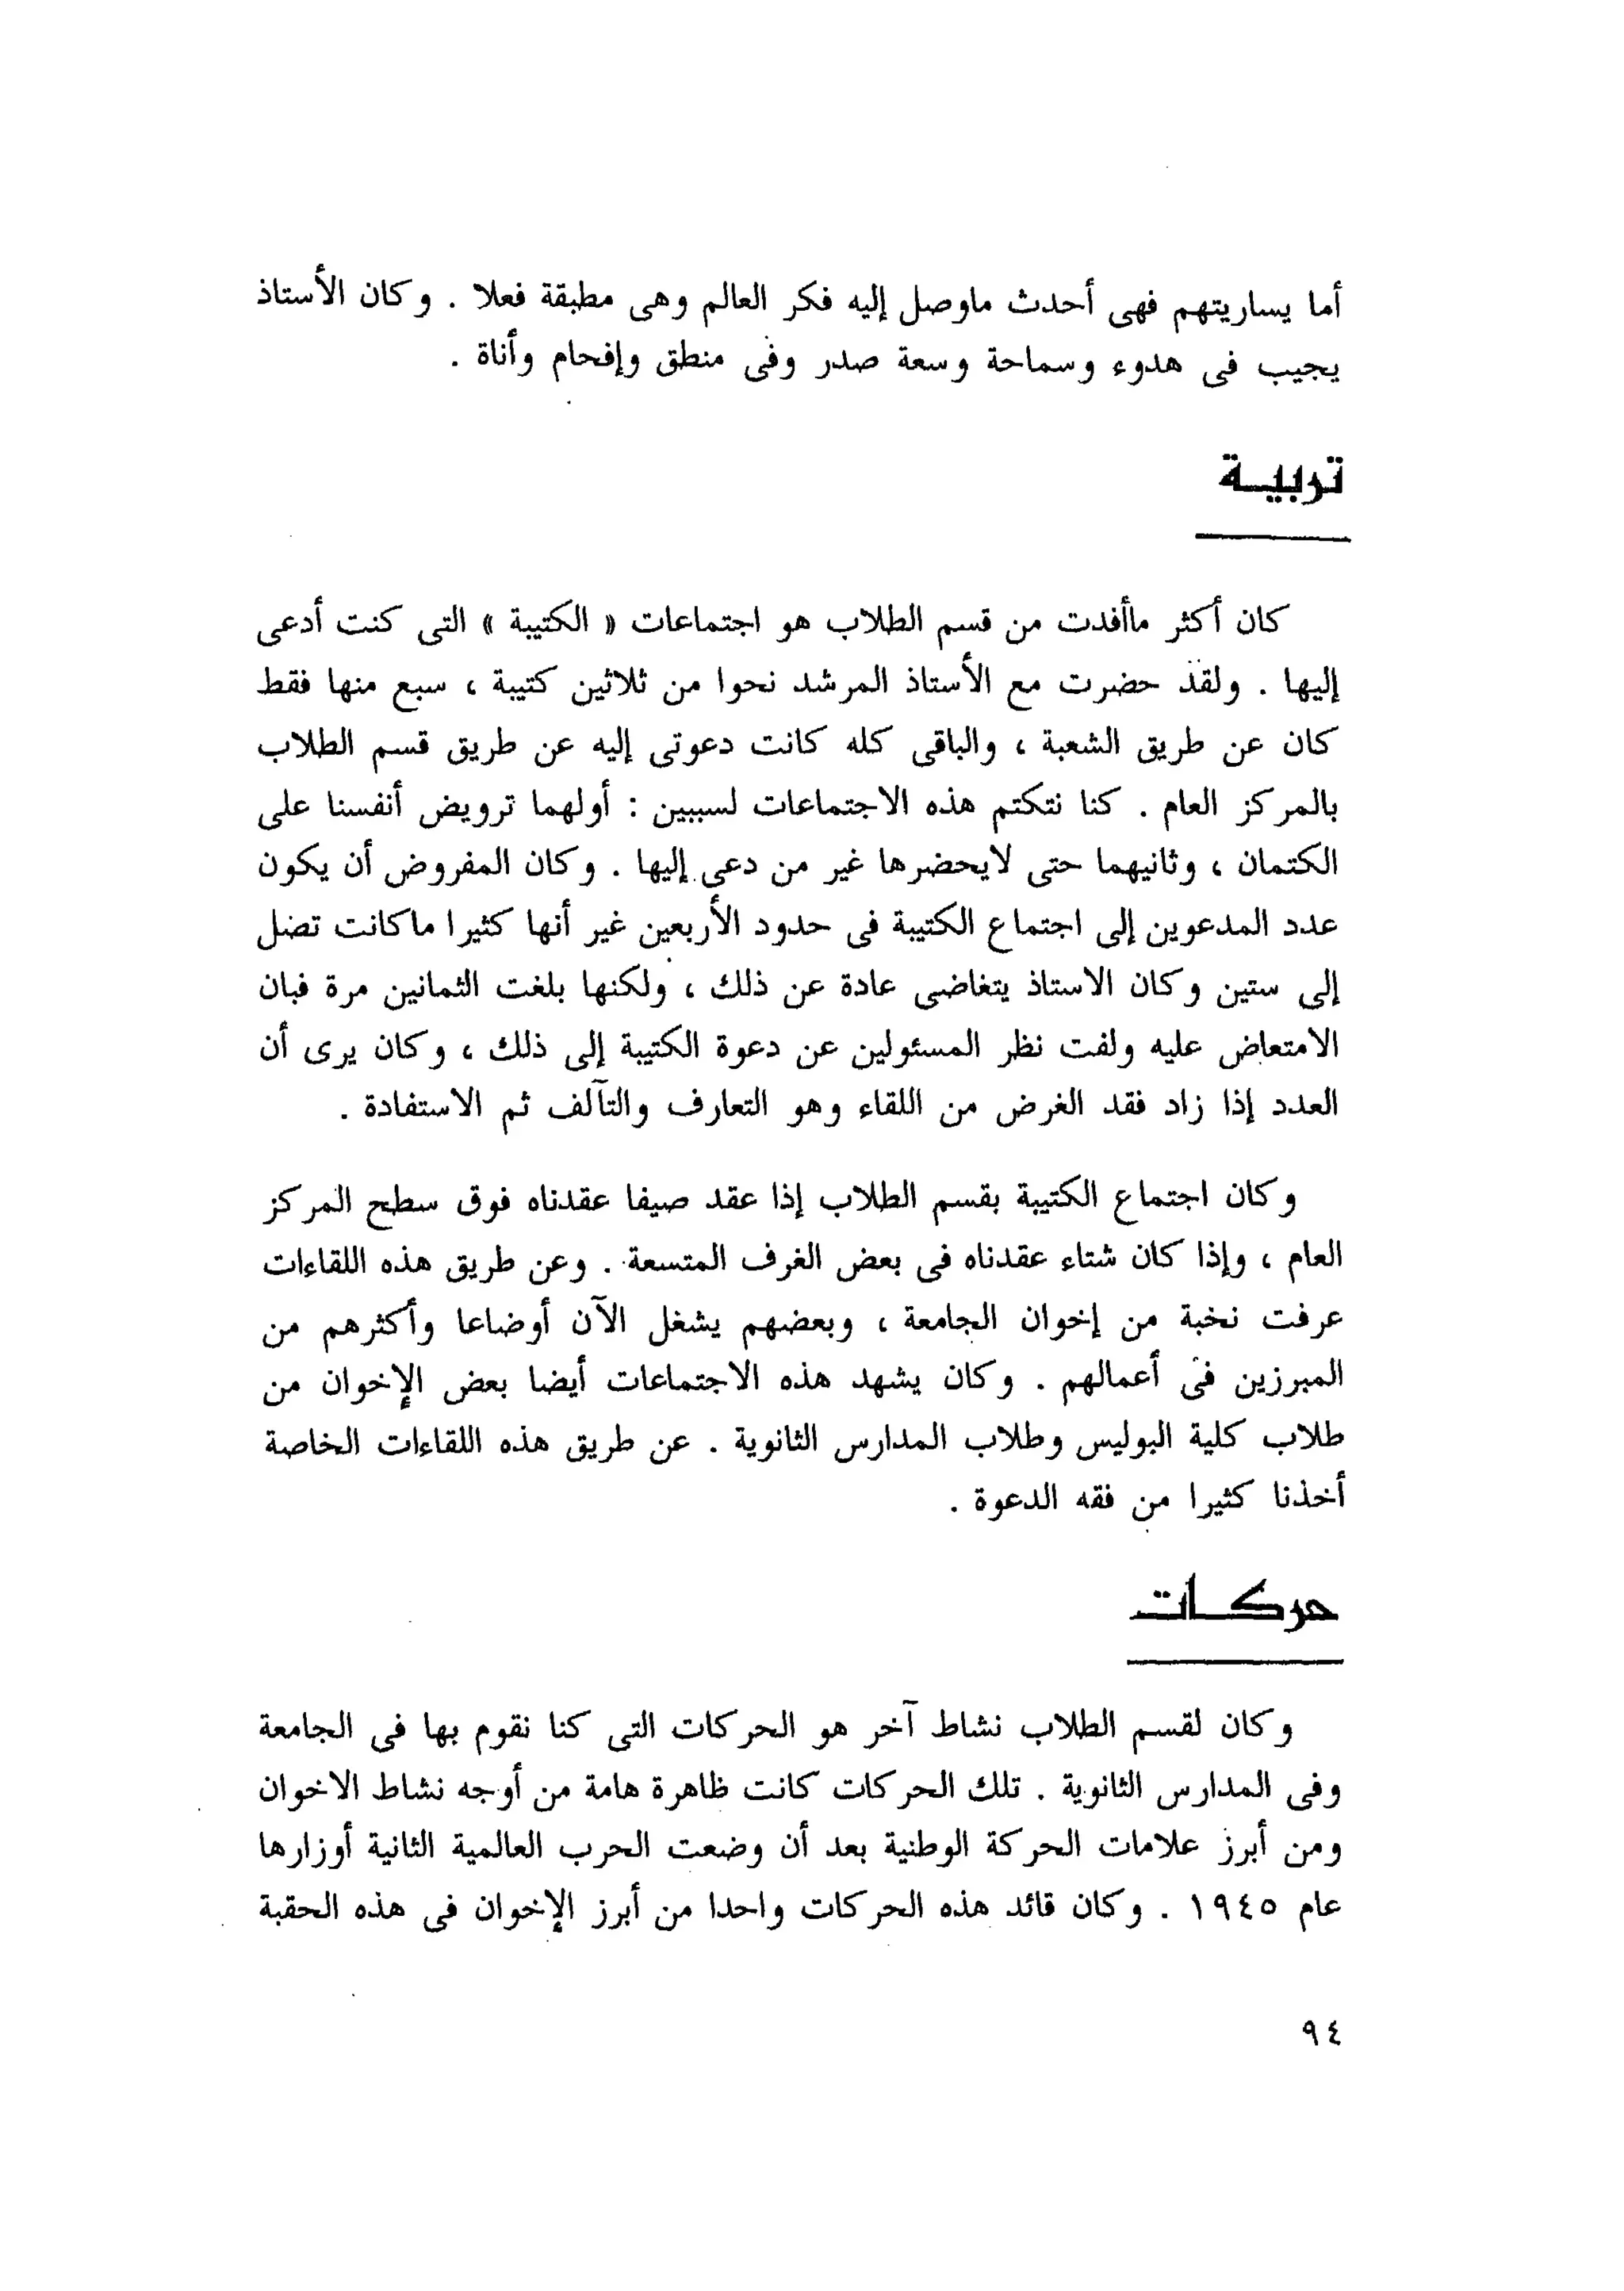 أما يساريتهم فهى أحدث ماوصل إليه فكر العالم وهى مطبقة فعلا . وكان الأستاذ
يجيب فى هدوء وسماحة وسعة صدر وفى منطق وإفحام وأناة .
تربيــة
كان أكثر ماأفدت من قسم الطلاب هو اجتماعات « الكتيبة » التى كنت أدعى
إليها . ولقد حضرت مع الأستاذ المرشد نحوا من ثلاثين كتيبة ، سبع منها فقط
كان عن طريق الشعبة ، والباقى كله كانت دعوتى إليه عن طريق قسم الطلاب
بالمركز العام . كنا نتكتم هذه الاجتماعات لسببين : أولهما ترويض أنفسنا على
الكتمان ، وثانيهما حتى لايحضرها غير من دعى إليها . وكان المفروض أن يكون
عدد المدعوين إلى اجتماع الكتيبة فى حدود الأربعين غير أنها كثيرا ماكانت تضل
إلى ستين وكان الاستاذ يتغاضى عادة عن ذلك ، ولكنها بلغت الثمانين مرة فبان
الامتعاض عليه ولفت نظر المسئولين عن دعوة الكتيبة إلى ذلك ، وكان يرى أن
العدد إذا زاد فقد الغرض من اللقاء وهو التعارف والتآلف ثم الاستفادة .
وكان اجتماع الكتيبة بقسم الطلاب إذا عقد صيفا عقدناه فوق سطح المركز
العام ، وإذا كان شتاء عقدناه فى بعض الغرف المتسعة . وعن طريق هذه اللقاءات
عرفت نخبة من إخوان الجامعة ، وبعضهم يشغل الآن أوضاعا وأكثرهم من
المبرزين فى أعمالهم . وكان يشهد هذه الاجتماعات أيضا بعض الإخوان من
طلاب كلية البوليس وطلاب المدارس الثانوية . عن طريق هذه اللقاءات الخاصة
أخذنا كثيرا من فقه الدعوة .
حركــات
وكان لقسم الطلاب نشاط آخر هو الحركات التى كنا نقوم بها فى الجامعة
وفى المدارس الثانوية . تلك الحركات كانت ظاهرة هامة من أوجه نشاط الاخوان
ومن أبرز علامات الحركة الوطنية بعد أن وضعت الحرب العالمية الثانية أوزارها
عام ١٩٤٥ . وكان قائد هذه الحركات واحدا من أبرز الإخوان فى هذه الحقبة
٩٤